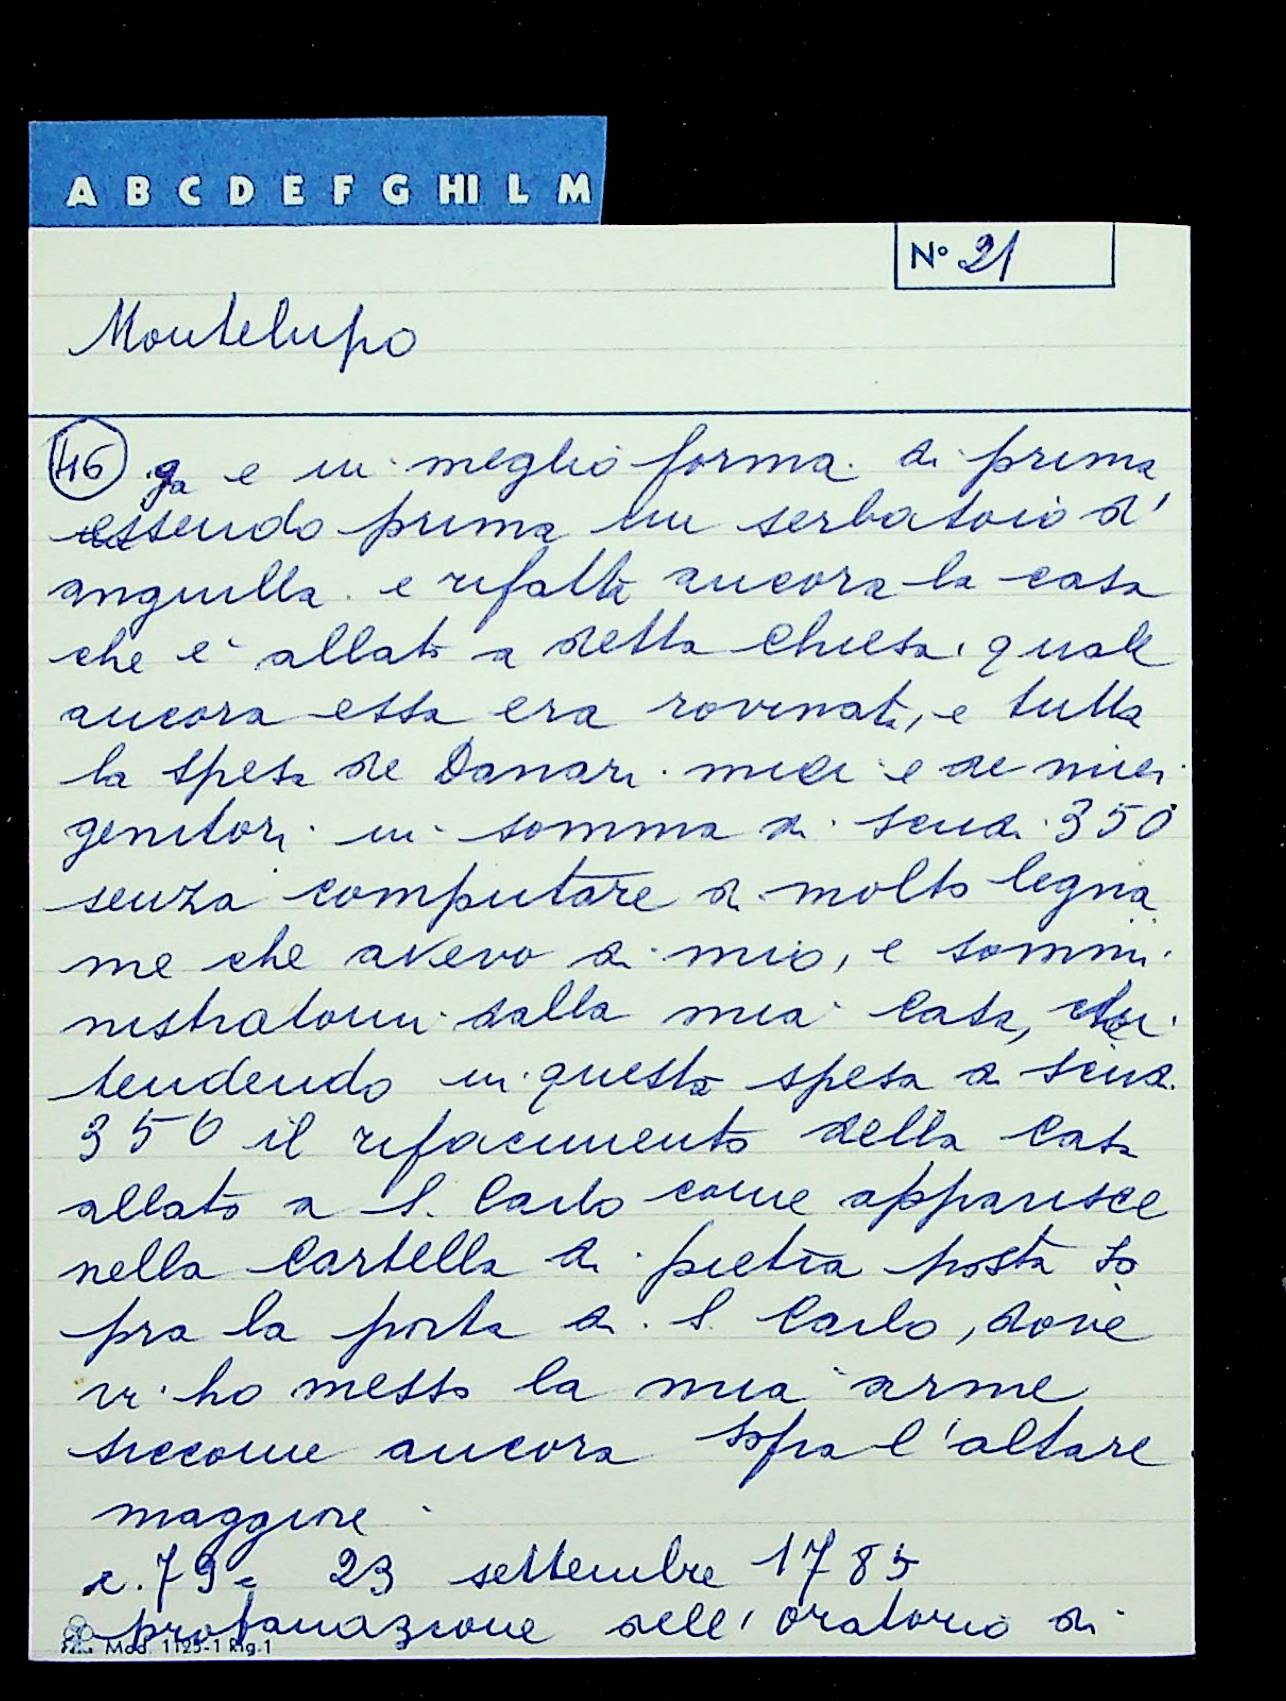 A B C D E F G HI L M
N° 21
Montelupo
46 ga e in meglio forma di prima
essendo prima un serbatoio d'
anguilla e rifatta ancora la casa
che è allato a detta Chiesa, quale
ancora essa era rovinata, e tutta
la spesa de Danari miei e de miei
genitori in somma di scudi 350
senza computare di molto legna
me che avevo di mio, e sommi
nistratomi dalla mia Casa,
tendendo in questa spesa di scudi
350 il rifacimento della Casa
allato a S. Carlo come apparisce
nella Cartella di pietra posta so
pra la porta di S. Carlo, dove
vi ho messo la mia arme
siccome ancora sopra l'altare
maggiore
c. 79 = 23 settembre 1785
profanazione dell'oratorio di
Mod. 1125-1 Rig.1